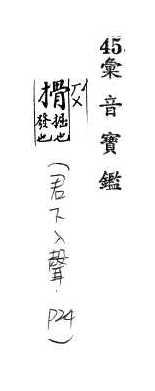 45.彙音寶鑑
搰掘也發也
(君下入聲.P24)